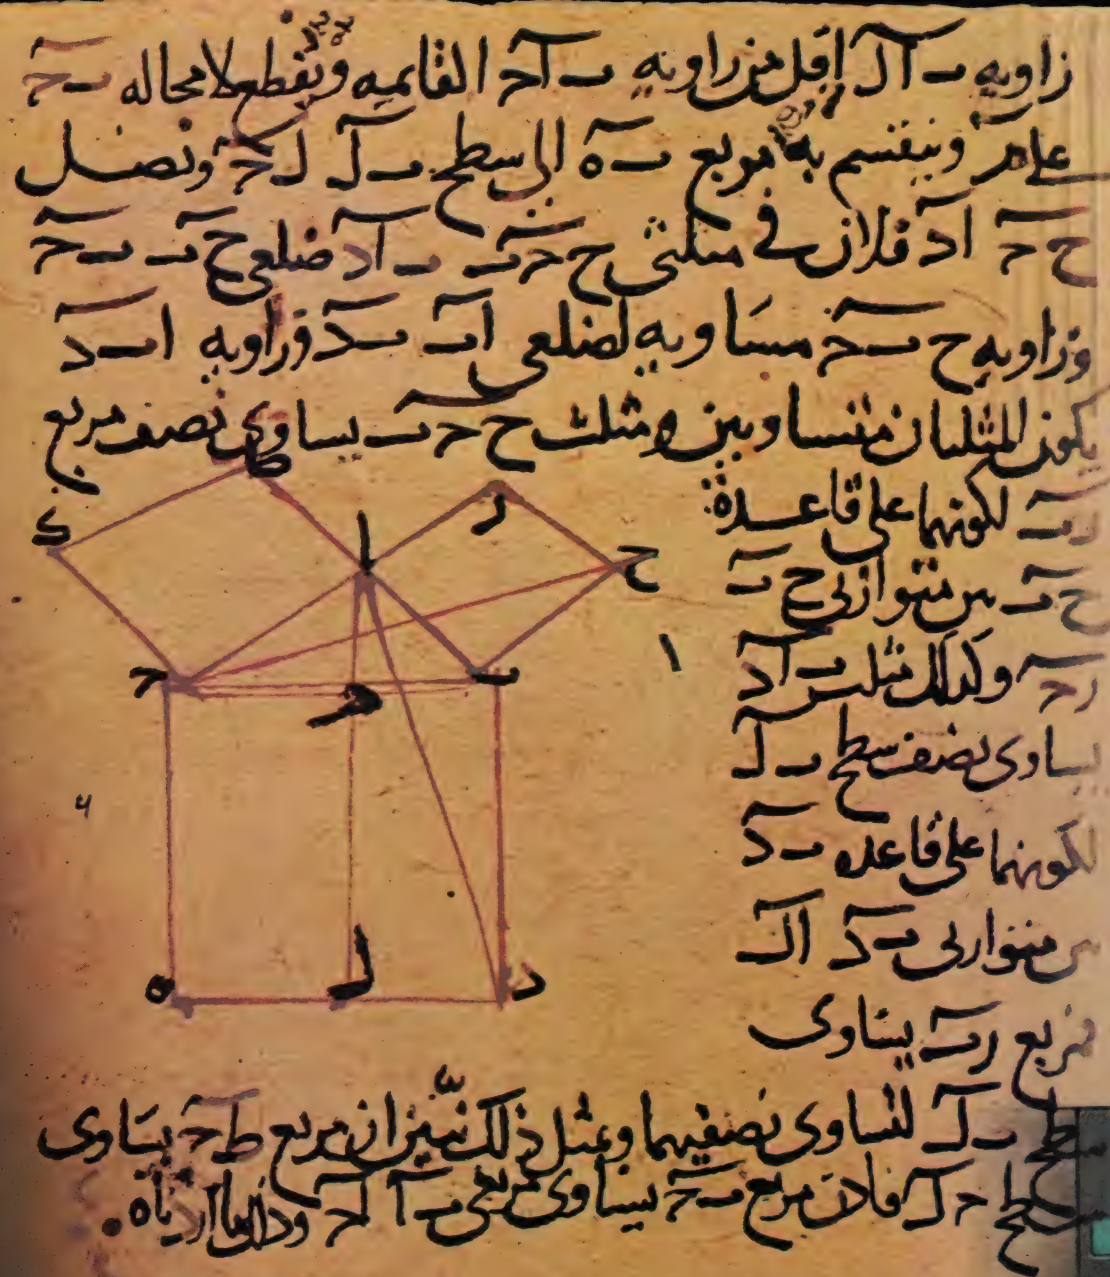 زاويه ب آ ل اقل من زاويه ب آ ح القايمه ويقطع لا محاله ب ح
على م وينقسم به مربع ب ه الى سطح ب ل ل ح ونصل
ح ح آ د فلان في مثلثي ح ح ب ب آ د ضلعي ح ب ب ح
وزاويه ح ب ح مساويه لضلعي ا ب ب د وزاويه ا ب د
يكون المثلثان متساويين ومثلث ح ح ب يساوي نصف مربع
ر ب لكونهما على قاعدة
ح ب بين متوازيي ح ب
ر ح وكذلك مثلث ب آ د
يساوى نصف سطح ب ل
لكونهما على قاعده ب د
بين متوازيى ب د ا ل
فمربع ر ب يساوى
سطح ب ل لتساوى نصفيهما وبمثل ذلك نبين ان مربع ط ح يساوى
سطح ح ل فاذن مربع ب ح يساوى مربعى ب آ آ ح وذلك ما اردناه
ك
ط
ا
ر
ح
ح
م
ب
ه
ل
د